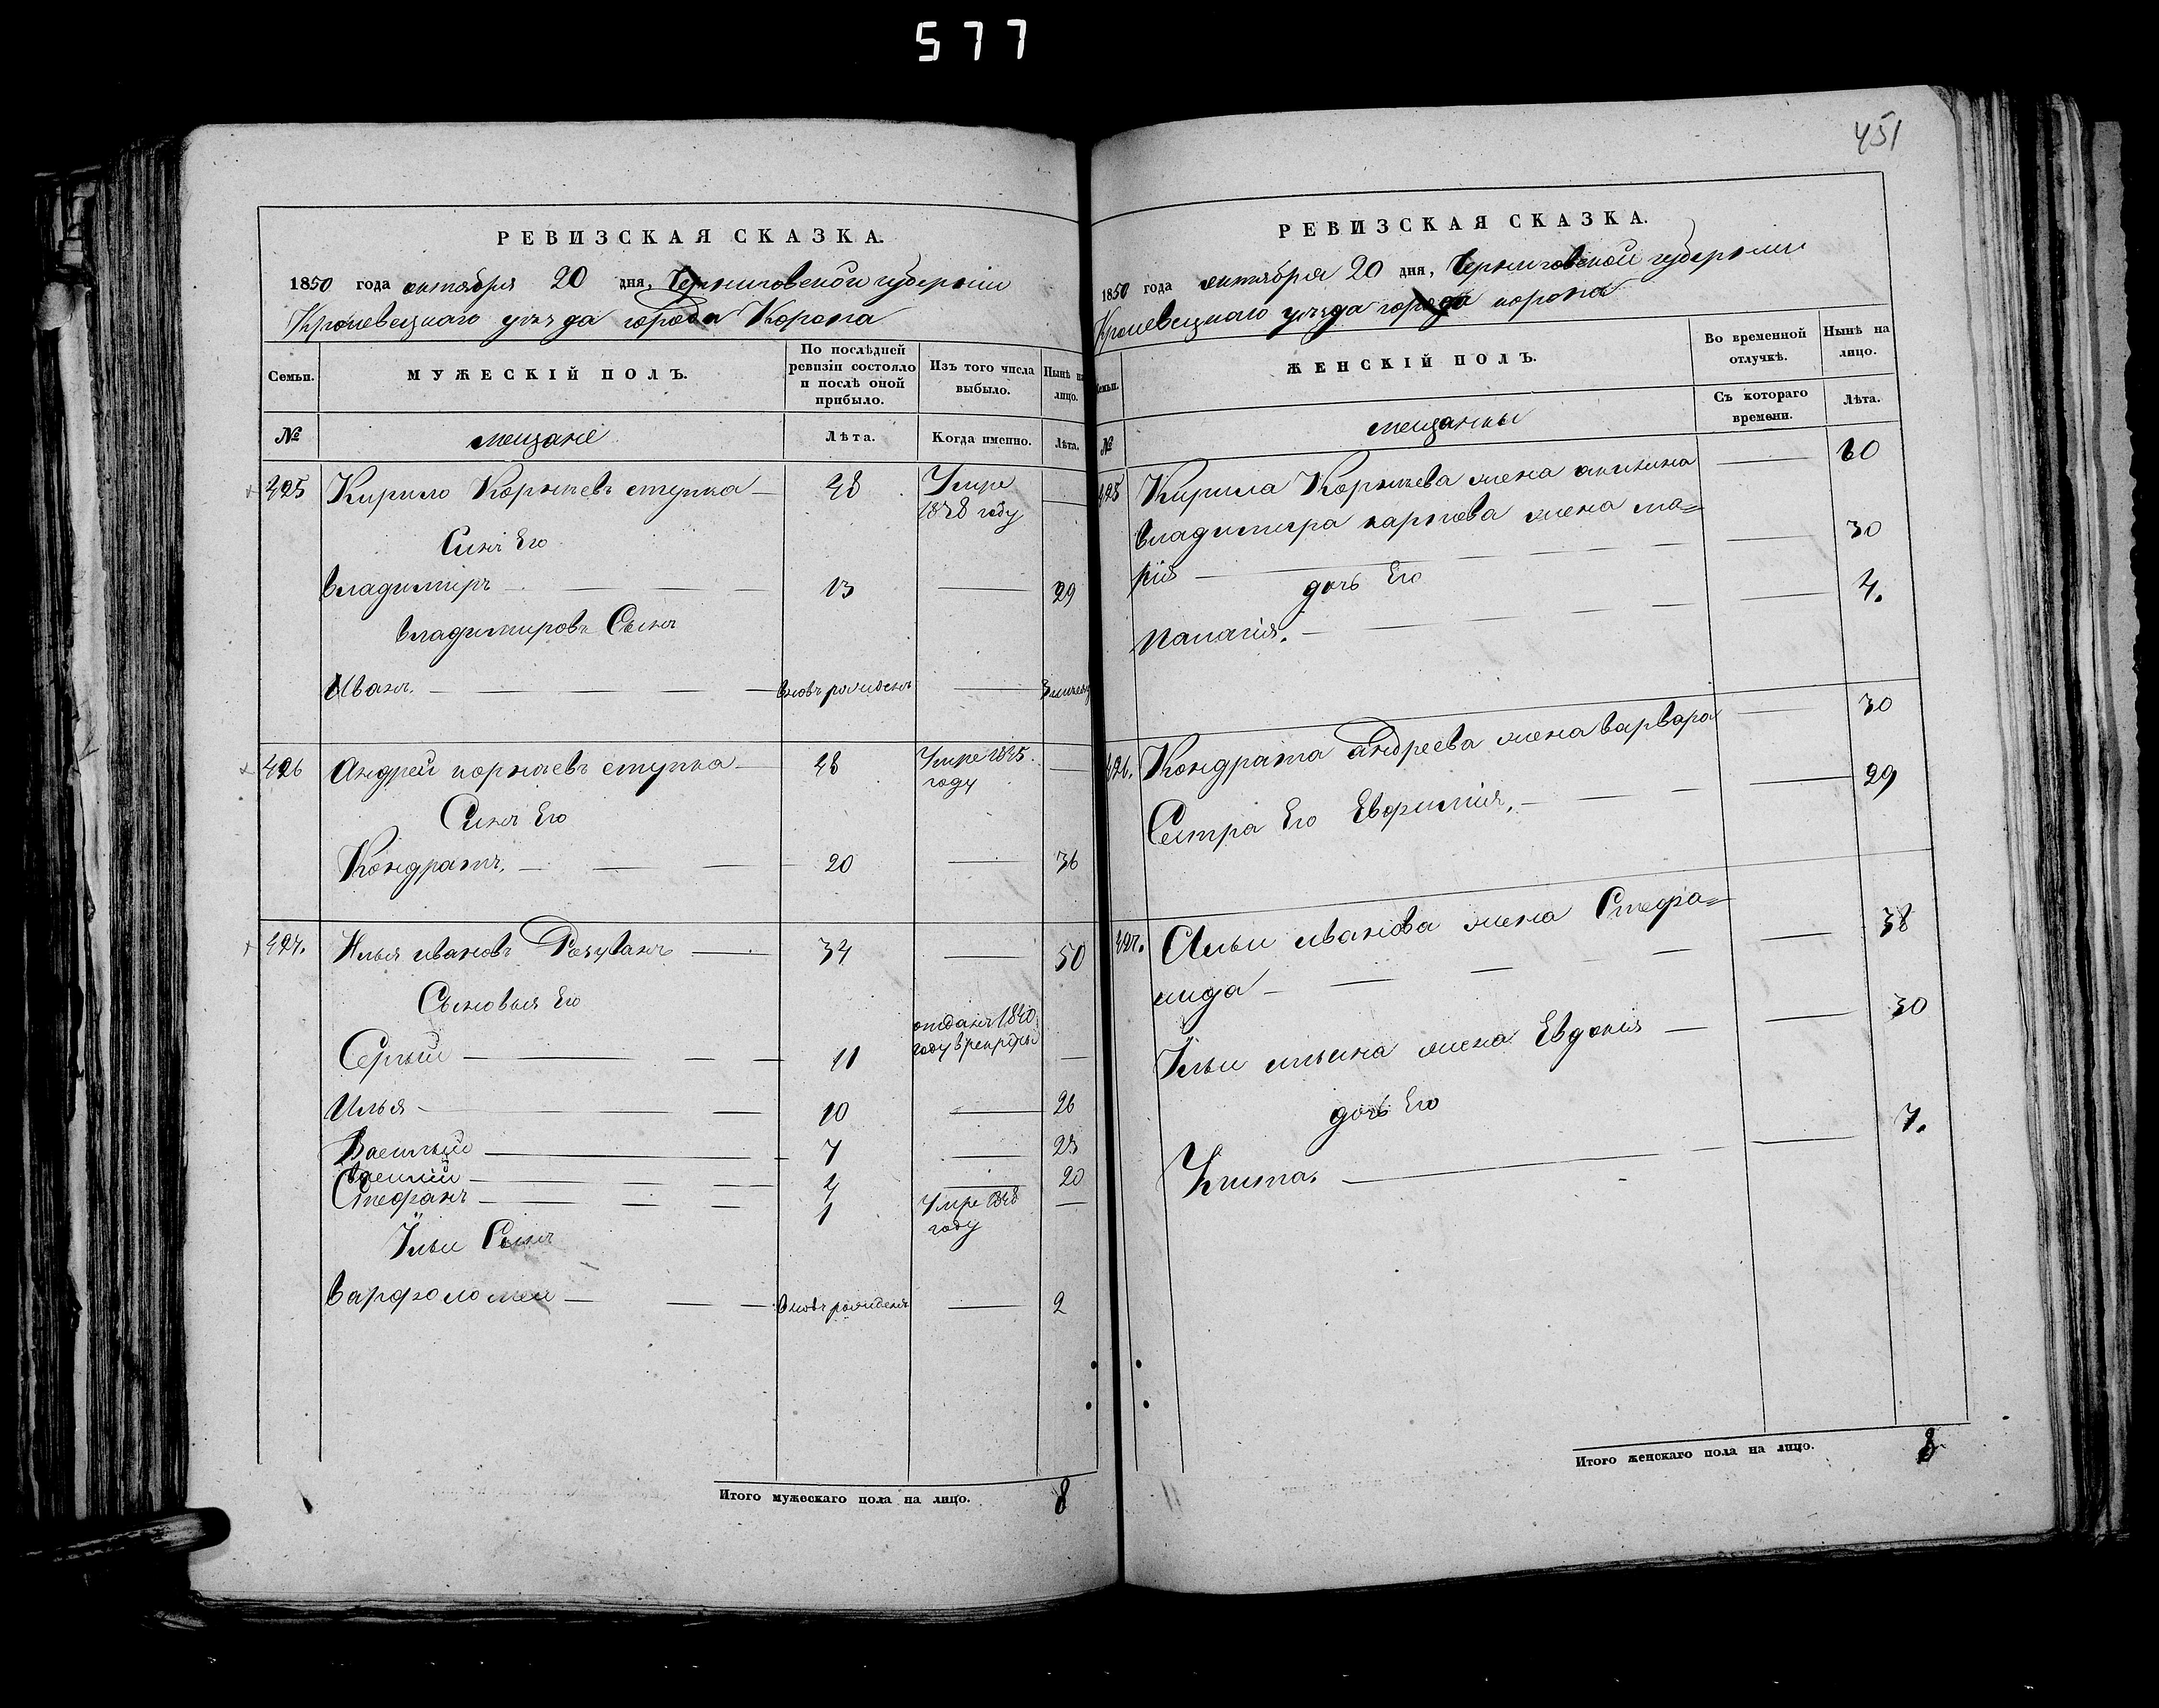 577
РЕВИЗСКАЯ СКАЗКА.
1850 года октября 20 дня, Черниговской губернии
Кролевецкаго уезда города Коропа
Семьи.
МУЖЕСКІЙ ПОЛЪ.
По послѣдней ревизіи состояло и послѣ оной прибыло.
Изъ того числа выбыло.
Нынѣ на лицо.
№
мещане
Лѣта.
Когда именно.
Лѣта.
425 Кирило Корнѣевъ ступка 48 Умре 1848 году
Синъ Его
владимiръ 13 29
владимировъ Сынъ
Иванъ. вновь рожденъ
426 Андрей корнѣевъ ступка 48 Умре 1845 году
Синъ Его
Кондратъ, 20 36
427. Илья ивановъ 34 50
Сыновья Его
Сергый 11 отданъ 1840 году в рекруты
Илья 10 26
Василий 7 23
василий 4 20
Стефанъ 1 Умре 1848 году
Ильи Сынъ
варфоломей вновь рожденъ 2
Итого мужескаго пола на лицо. 8
451
РЕВИЗСКАЯ СКАЗКА.
1850 года октября 20 дня, Черниговской губернии
Кролевецкаго уезда города коропа
Семьи.
ЖЕНСКІЙ ПОЛЪ.
Во временной отлучкѣ.
Нынѣ на лицо.
№
мещанки
Съ котораго времени.
Лѣта.
425 Кирила Корнѣева жена акилина 60
владимира карпова жена ма=
рiя 30
дочь Его
Палагiя. 4.
426. Кондрата андреева жена варвара 30
Сестра Его Евфимiя, 29
427. Ильи иванова жена Стефа=
нида 38
Ильи ильина жена Евдокiя 30
дочь Его
7.
Итого женскаго пола на лицо. 8